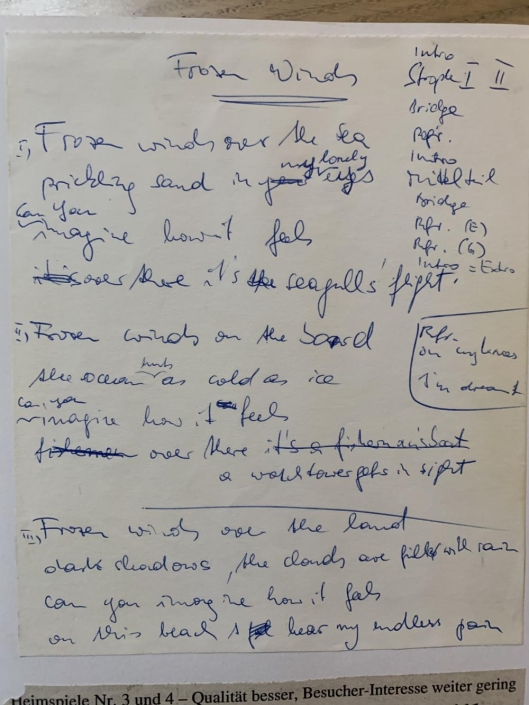 Frozen Winds
Intro
Strophe I II
Bridge
Refr.
Intro
Mittelteil
Bridge
Refr. (E)
Refr. (G)
Intro = Extro
I, Frozen winds over the sea
prickling sand in my lonely eyes
can you
imagine how it feels
over there it's seagulls' flight.
II, Frozen winds on the board
the ocean as cold as ice
can you
imagine how it feels
over there it's a fisherman's boat
a watchtower gets in sight
Refr.
on my
I'm
III, Frozen winds over the land
dark shadows, the clouds are filled with rain
can you imagine how it feels
on this beach I hear my endless pain
Heimspiele Nr. 3 und 4 – Qualität besser, Besucher-Interesse weiter gering